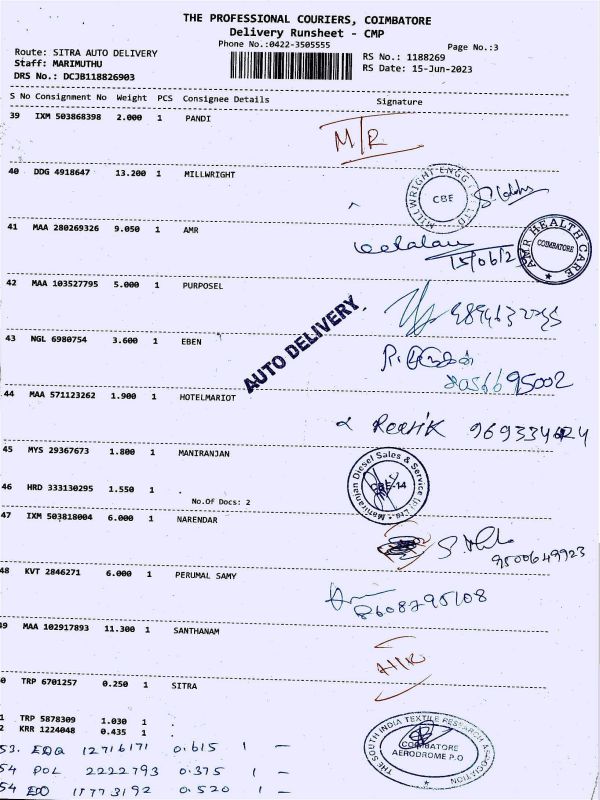 THE PROFESSIONAL COURIERS, COIMBATORE
Delivery Runsheet - CMP
Phone No.:0422-3505555
Page No.:3
Route: SITRA AUTO DELIVERY
Staff: MARIMUTHU
DRS No.: DCJB118826903
RS No.: 1188269
RS Date: 15-Jun-2023
S No Consignment No Weight PCS Consignee Details Signature
39 IXM 503868398 2.000 1 PANDI
M/R
40 DDG 4918647 13.200 1 MILLWRIGHT
MILLWRIGHT ENGG LTD
CBE
41 MAA 280269326 9.050 1 AMR
15/06/2
AMR HEALTH CARE
COIMBATORE
42 MAA 103527795 5.000 1 PURPOSEL
AUTO DELIVERY
43 NGL 6980754 3.600 1 EBEN
95002
44 MAA 571123262 1.900 1 HOTELMARIOT
45 MYS 29367673 1.800 1 MANIRANJAN
Maniranjan Diesel Sales & Service (P) Ltd.
CBE-14
46 HRD 333130295 1.550 1
No.Of Docs: 2
47 IXM 503818004 6.000 1 NARENDAR
9500649923
48 KVT 2846271 6.000 1 PERUMAL SAMY
8608795108
49 MAA 102917893 11.300 1 SANTHANAM
0 TRP 6701257 0.250 1 SITRA
1 TRP 5878309 1.030 1
2 KRR 1224048 0.435 1
THE SOUTH INDIA TEXTILE RESEARCH ASSOCIATION
COIMBATORE
AERODROME P.O
53. EDQ 12716171 0.615 1 -
54 POL 2222793 0.375 1 -
54 EDQ 0.520 1 -